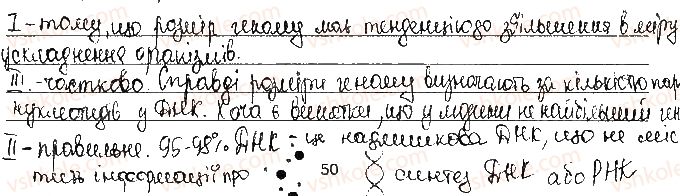 I - тому, що розмір геному має тенденцію до збільшення в міру
ускладнення організмів.
III. - частково. Справді розміри геному визначають за кількістю пар
нуклеотидів у ДНК. Хоча є винятки, що у людини не найбільший ген
II - правильне. 95-98% ДНК - це надлишкова ДНК, що не міс
тить інформації про 50 синтез ДНК або РНК
vshkole.com